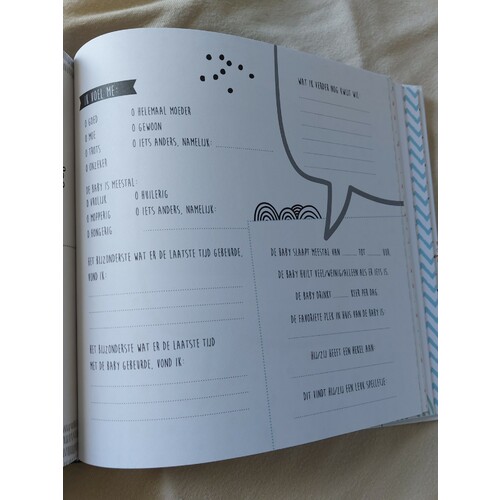 IK VOEL ME:
O GOED
O MOE
O TROTS
O UNLEKER
O HELEMAAL MOEDER
O GEWOON
O IETS ANDERS, NAMELIJK:
DE BABY IS MEESTAL:
O VROLIJK
O MOPPERIG
O HONGERIG
O HUILERIG
O IETS ANDERS, NAMELIJK:
HET BIJZONDERSTE WAT ER DE LAATSTE TIJD GEBEURDE,
VOND IK:
HET BIJZONDERSTE WAT ER DE LAATSTE TIJD
MET DE BABY GEBEURDE, VOND IK:
WAT IK VERDER NOG KWIJT WIL:
DE BABY SLAAPT MEESTAL VAN TOT UUR
DE BABY HUILT VEEL/WEINIG/ALLEEN ALS ER IETS IS
DE BABY DRINKT KEER PER DAG
DE FAVORIETE PLEK IN HUIS VAN DE BABY IS:
HIJ/ZIJ HEEFT EEN HEKEL AAN:
DIT VINDT HIJ/ZIJ EEN LEUK SPELLETJE: